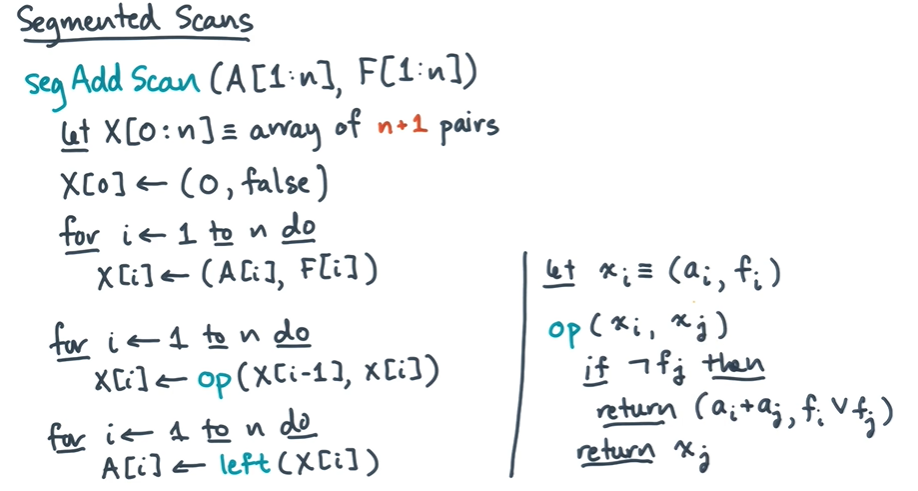 Segmented Scans
seg Add Scan (A[1:n], F[1:n])
let X[0:n] ≡ array of n+1 pairs
X[0] ← (0, false)
for i ← 1 to n do
X[i] ← (A[i], F[i])
for i ← 1 to n do
X[i] ← op(X[i-1], X[i])
for i ← 1 to n do
A[i] ← left(X[i])
let xᵢ ≡ (aᵢ, fᵢ)
op(xᵢ, xⱼ)
if ¬fⱼ then
return (aᵢ+aⱼ, fᵢ∨fⱼ)
return xⱼ